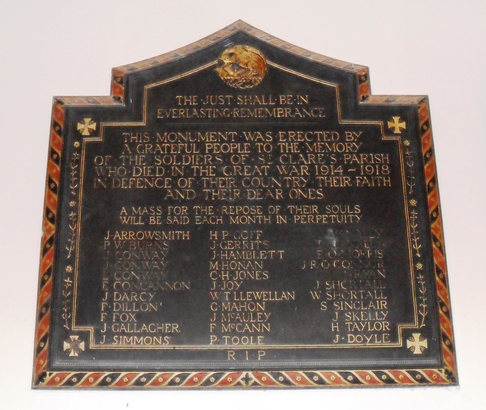 THE · JUST · SHALL · BE · IN
EVERLASTING · REMEMBRANCE
THIS · MONUMENT · WAS · ERECTED · BY
A · GRATEFUL · PEOPLE · TO · THE · MEMORY
OF · THE · SOLDIERS · OF · ST CLARE'S · PARISH
WHO · DIED · IN · THE · GREAT · WAR · 1914 – 1918
IN · DEFENCE · OF · THEIR · COUNTRY · THEIR · FAITH
AND · THEIR · DEAR · ONES
A · MASS · FOR · THE · REPOSE · OF · THEIR · SOULS
WILL · BE · SAID · EACH · MONTH · IN · PERPETUITY
J · ARROWSMITH
P · W · BURNS
CONWAY
CONWAY
CONWAY
E · CONCANNON
J · DARCY
F · DILLON
F · FOX
J · GALLAGHER
J · SIMMONS
H · P · GOFF
J · GERRITS
J · HAMBLETT
M · HONAN
C · H · JONES
J · JOY
W · T · LLEWELLAN
G · MAHON
J · MCAULEY
F · MCCANN
P · TOOLE
J · SHORTALL
W · SHORTALL
S · SINCLAIR
J · SKELLY
H · TAYLOR
J · DOYLE
R · I · P